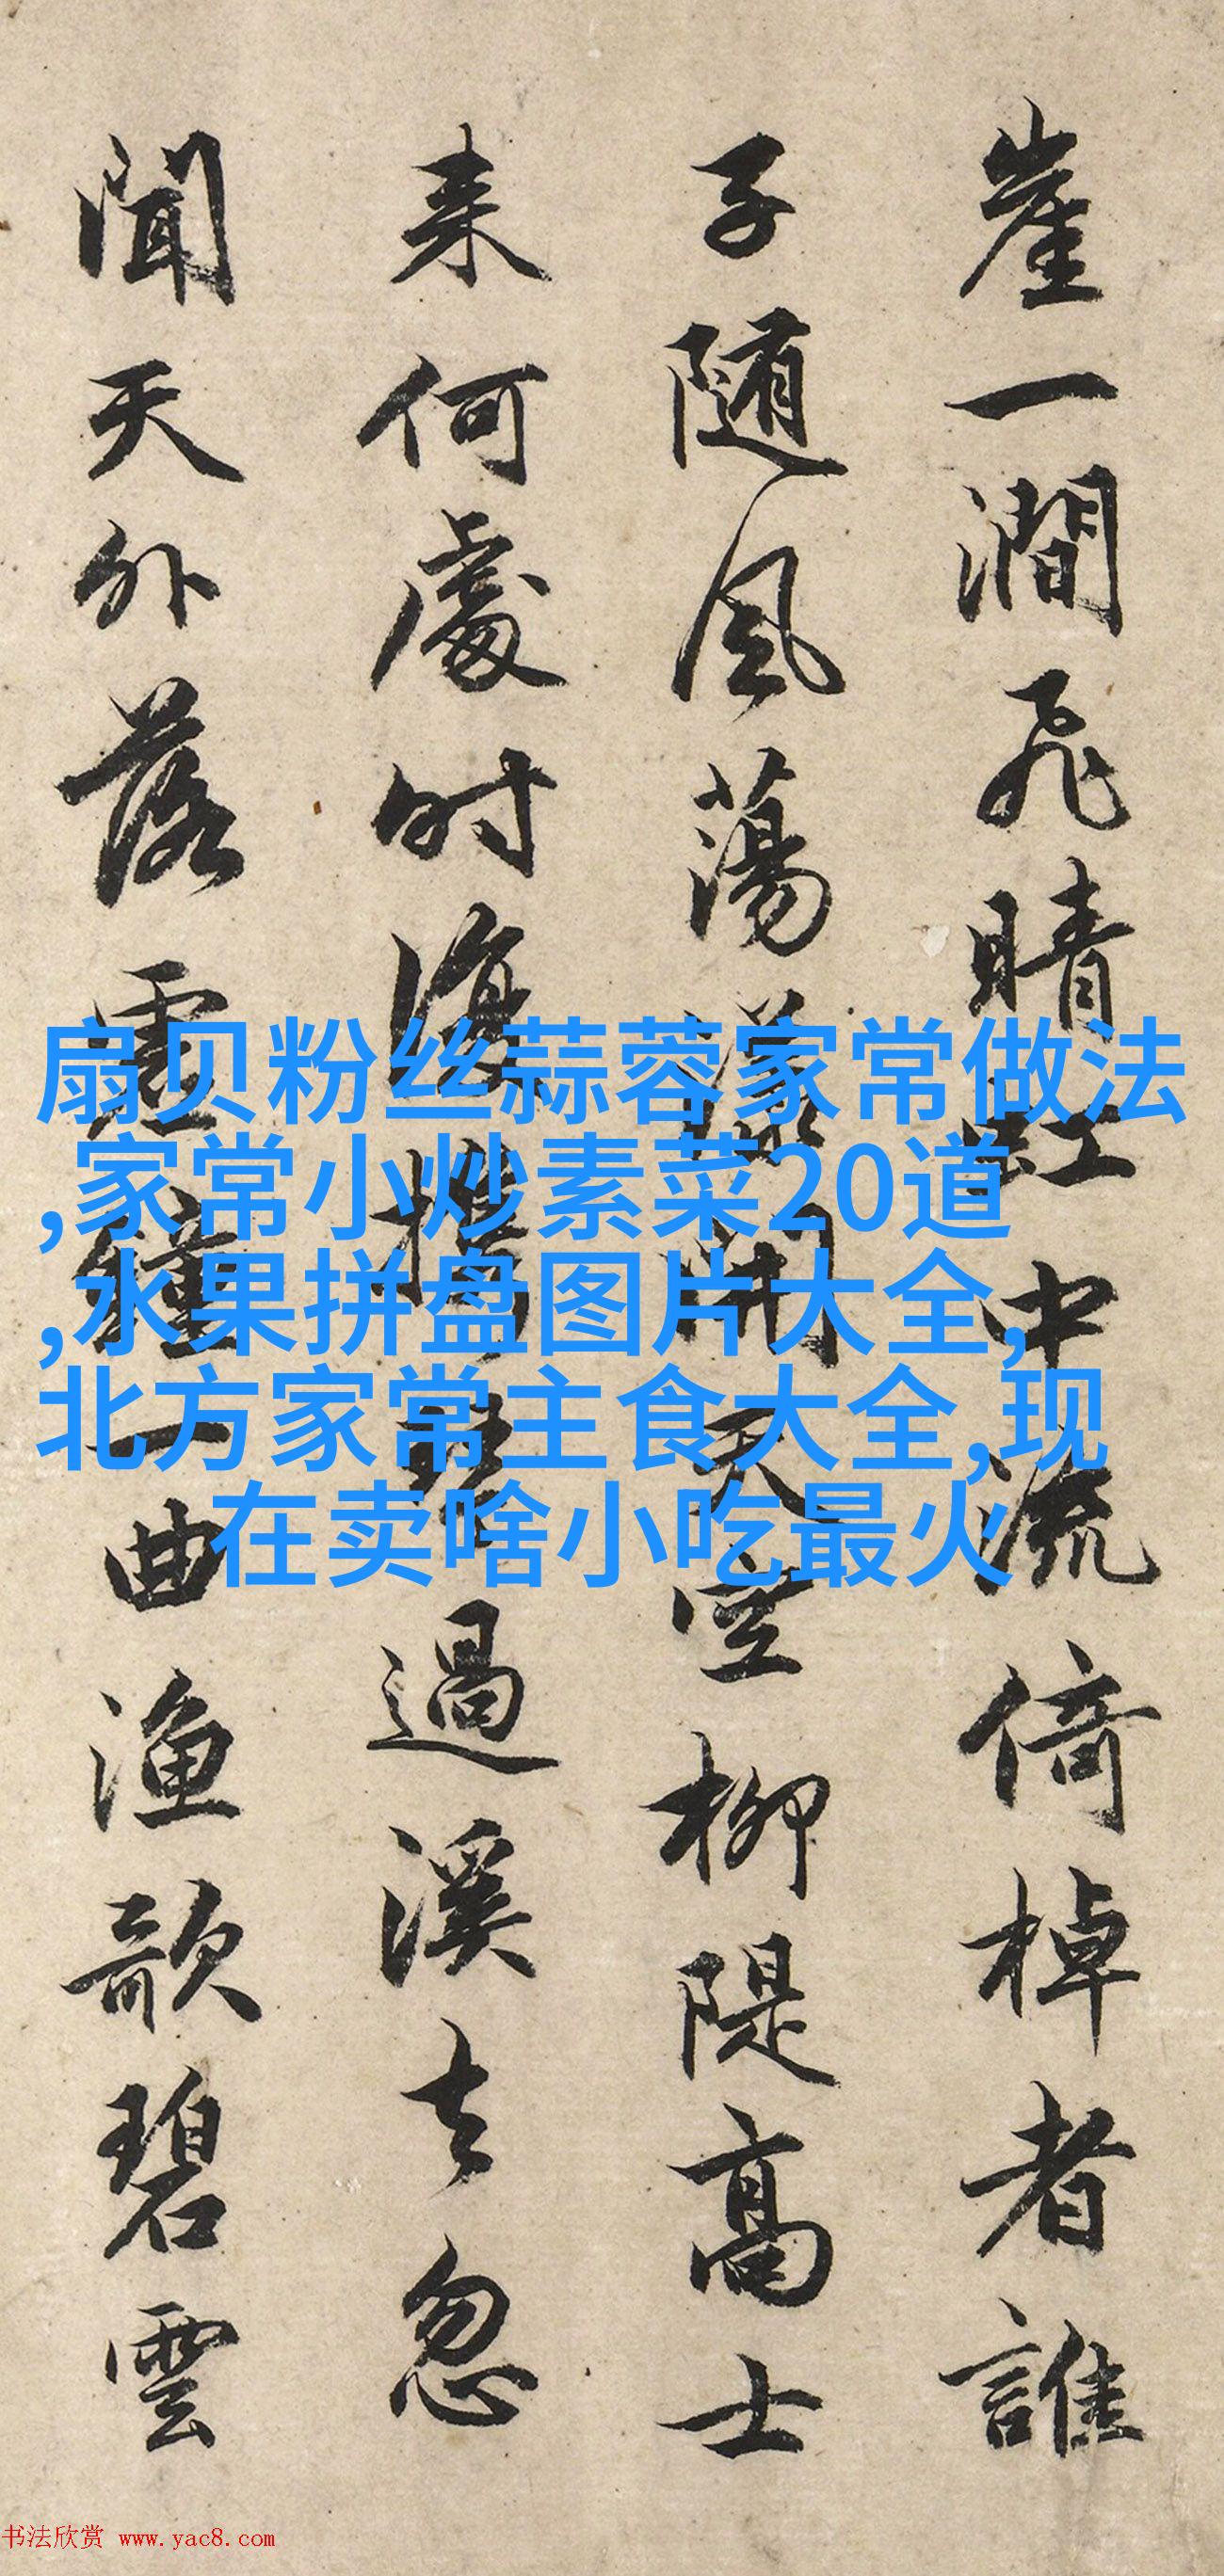 崖一澗飛晴虹中流倚棹者誰
子随風蕩漾開天空柳隄高士
来何處時復攜琴過溪去忽
聞天外落鐘一曲漁歌碧雲
扇贝粉丝蒜蓉家常做法
,家常小炒素菜20道
,水果拼盘图片大全,
北方家常主食大全,现
在卖啥小吃最火
书法欣赏 www.yac8.com